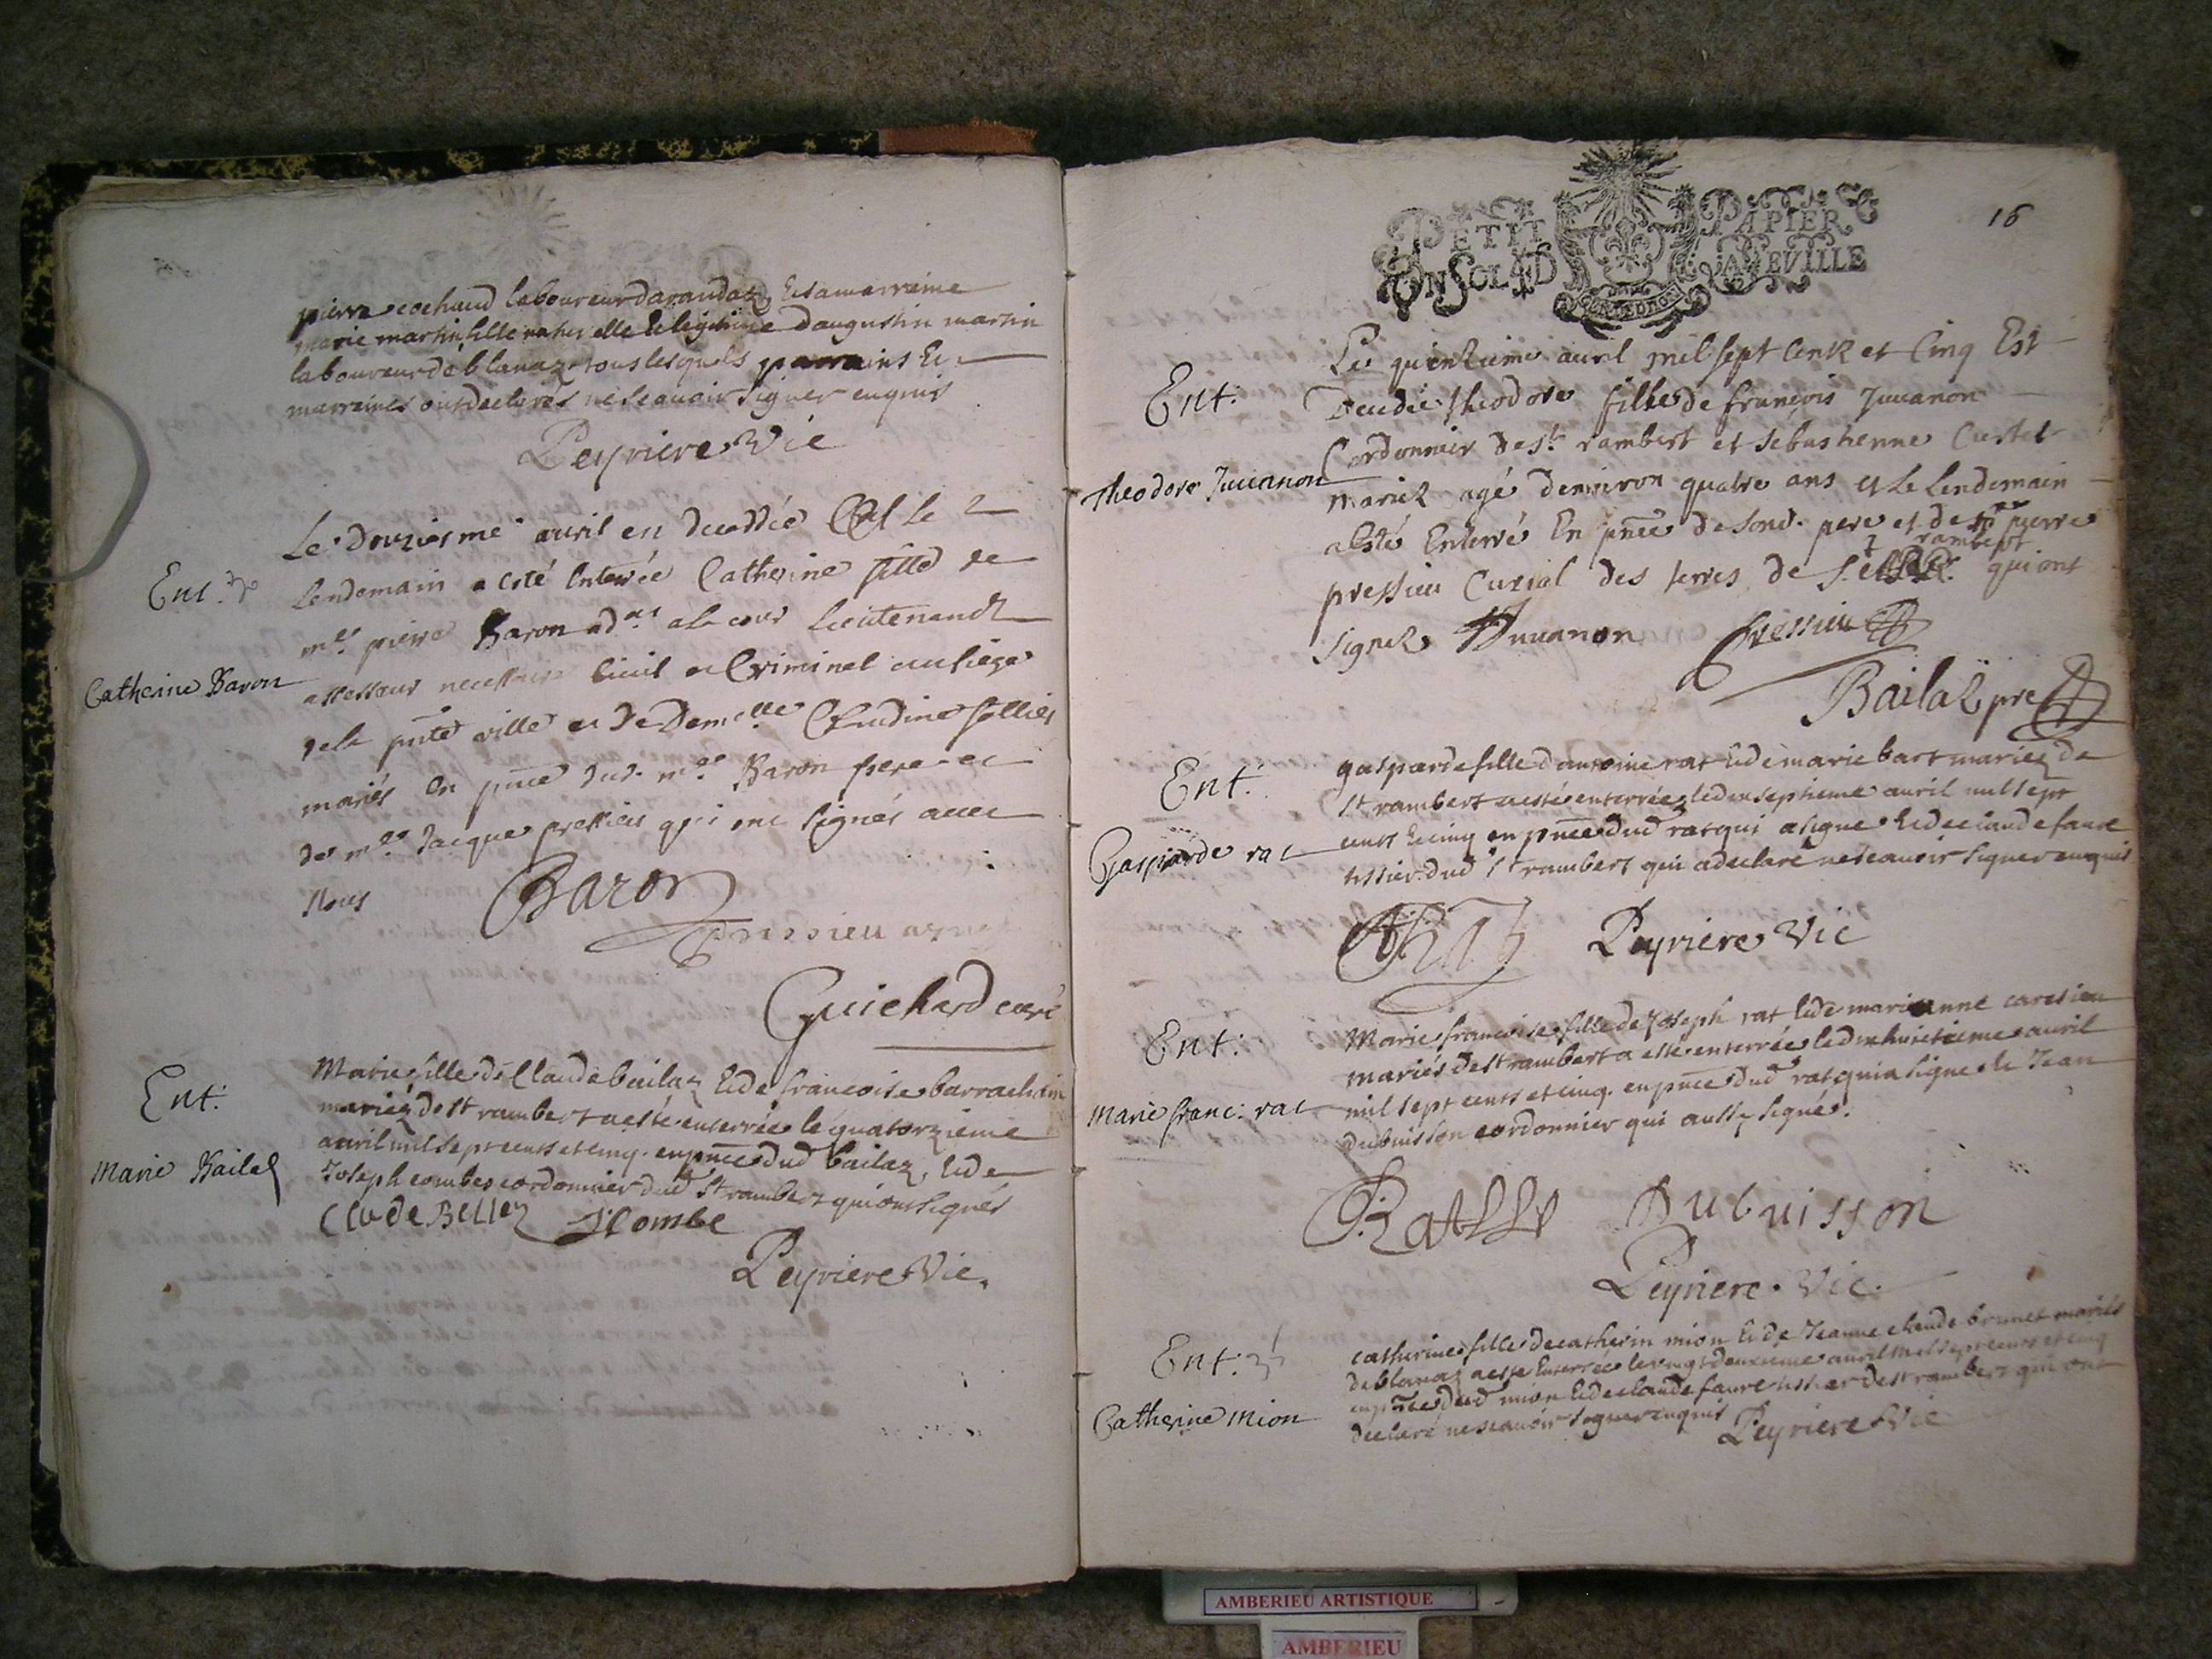 pierre cochaud laboureur darandaz, et sa marraine
marie martin fille naturelle et legitime daugustin martin
laboureur de blanaz tous lesquels parrains et
marraines ont declarés ne scavoir signer enquis
Peyriere Vic
Ent.
Catherine Baron
Le douziesme avril est decedée et le
lendemain a esté enterrée Catherine fille de
mre pierre Baron adat a la cour Lieutenandt
assesseur necessaire Civil et Criminel au siege
de la pnte ville et de Demelle Claudine sellier
mariés en pnce dud. mre Baron pere et
de mre Jacque pressieu qui ont signés avec
Nous
Baron
pressieu
Guichard curé
Ent:
Marie Bailaz
Marie fille de Claude bailaz et de francoise barrachin
mariez de st rambert a esté enterrée le quatorzieme
avril mil sept cents et cinq. en pnce dud bailaz, et de
Joseph combe cordonnier dud st rambert qui ont signés
Clode Bellez J Combe
Peyriere Vic.
PETIT PAPIER
UN SOL 4 D LA FEUILLE
16
Ent:
Theodore Juvanon
Le quinzieme avril mil sept centz et Cinq Est
decedié theodore fille de françois Juvanon
Cordonnier de st rambert et sebastienne
mariez agé denviron quatre ans et le lendemain
a esté Enterré En pnce de sond. pere et de mre pierre
pressieu Curial des terres de St rambert qui ont
signez Juvanon Pressieu
Bailaz pre
Ent:
Gasparde rat
gasparde fille dantoine rat et de marie bart mariez de
st rambert a esté enterrée le dixseptieme avril mil sept
cents et cinq en pnce dud rat qui a signé et de claude faure
tissier dud st rambert qui a declaré ne scavoir signer enquis
Peyriere Vic
Ent:
Marie franc: rat
Marie francoise fille de Joseph rat et de marianne
mariés de st rambert a esté enterrée le dixhuictieme avril
mil sept cents et cinq. en pnce dud rat qui a signé et de Jean
dubuisson cordonnier qui aussy signé.
Dubuisson
Peyriere. Vic.
Ent:
Catherine Mion
catherine fille de catherin mion et de Jeanne claude brunet mariés
de blanaz a esté Enterrée le vingt deuxieme avril mil sept cents et cinq
en pnce dud mion et de claude faure tissier de st rambert qui ont
declaré ne scavoir signer enquis Peyriere Vic
AMBERIEU ARTISTIQUE
AMBERIEU